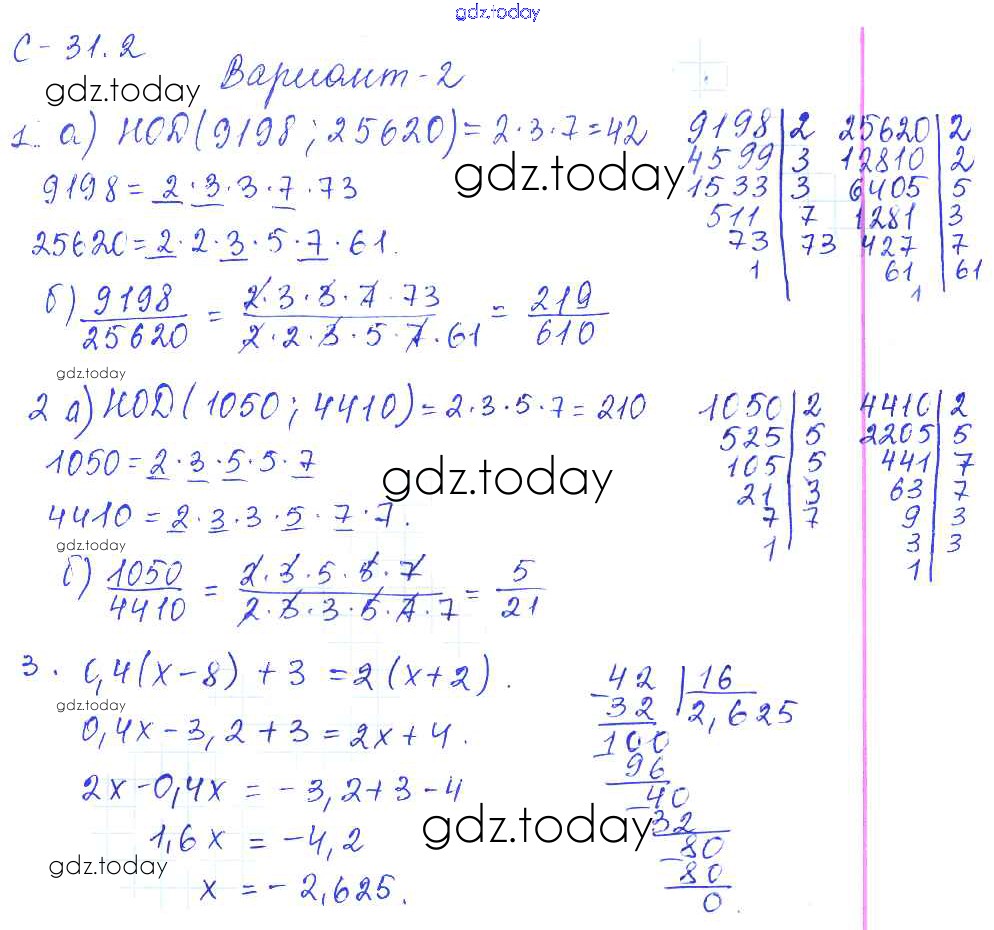 gdz.today
С-31.2
Вариант-2
gdz.today
1. а) НОД(9198; 25620) = 2·3·7 = 42
9198 = 2·3·3·7·73
25620 = 2·2·3·5·7·61.
gdz.today
9198 | 2
4599 | 3
1533 | 3
511 | 7
73 | 73
1
25620 | 2
12810 | 2
6405 | 5
1281 | 3
427 | 7
61 | 61
1
б) 9198/25620 = 2·3·3·7·73/2·2·3·5·7·61 = 219/610
gdz.today
2 а) НОД(1050; 4410) = 2·3·5·7 = 210
1050 = 2·3·5·5·7
4410 = 2·3·3·5·7·7.
gdz.today
gdz.today
1050 | 2
525 | 5
105 | 5
21 | 3
7 | 7
1
4410 | 2
2205 | 5
441 | 7
63 | 7
9 | 3
3 | 3
1
б) 1050/4410 = 2·3·5·5·7/2·3·3·5·7·7 = 5/21
3. 0,4(x-8) + 3 = 2(x+2).
gdz.today
0,4x - 3,2 + 3 = 2x + 4.
2x - 0,4x = -3,2 + 3 - 4
1,6x = -4,2
x = -2,625.
gdz.today
gdz.today
42 | 16
-32 | 2,625
100
-96
40
-32
80
-80
0